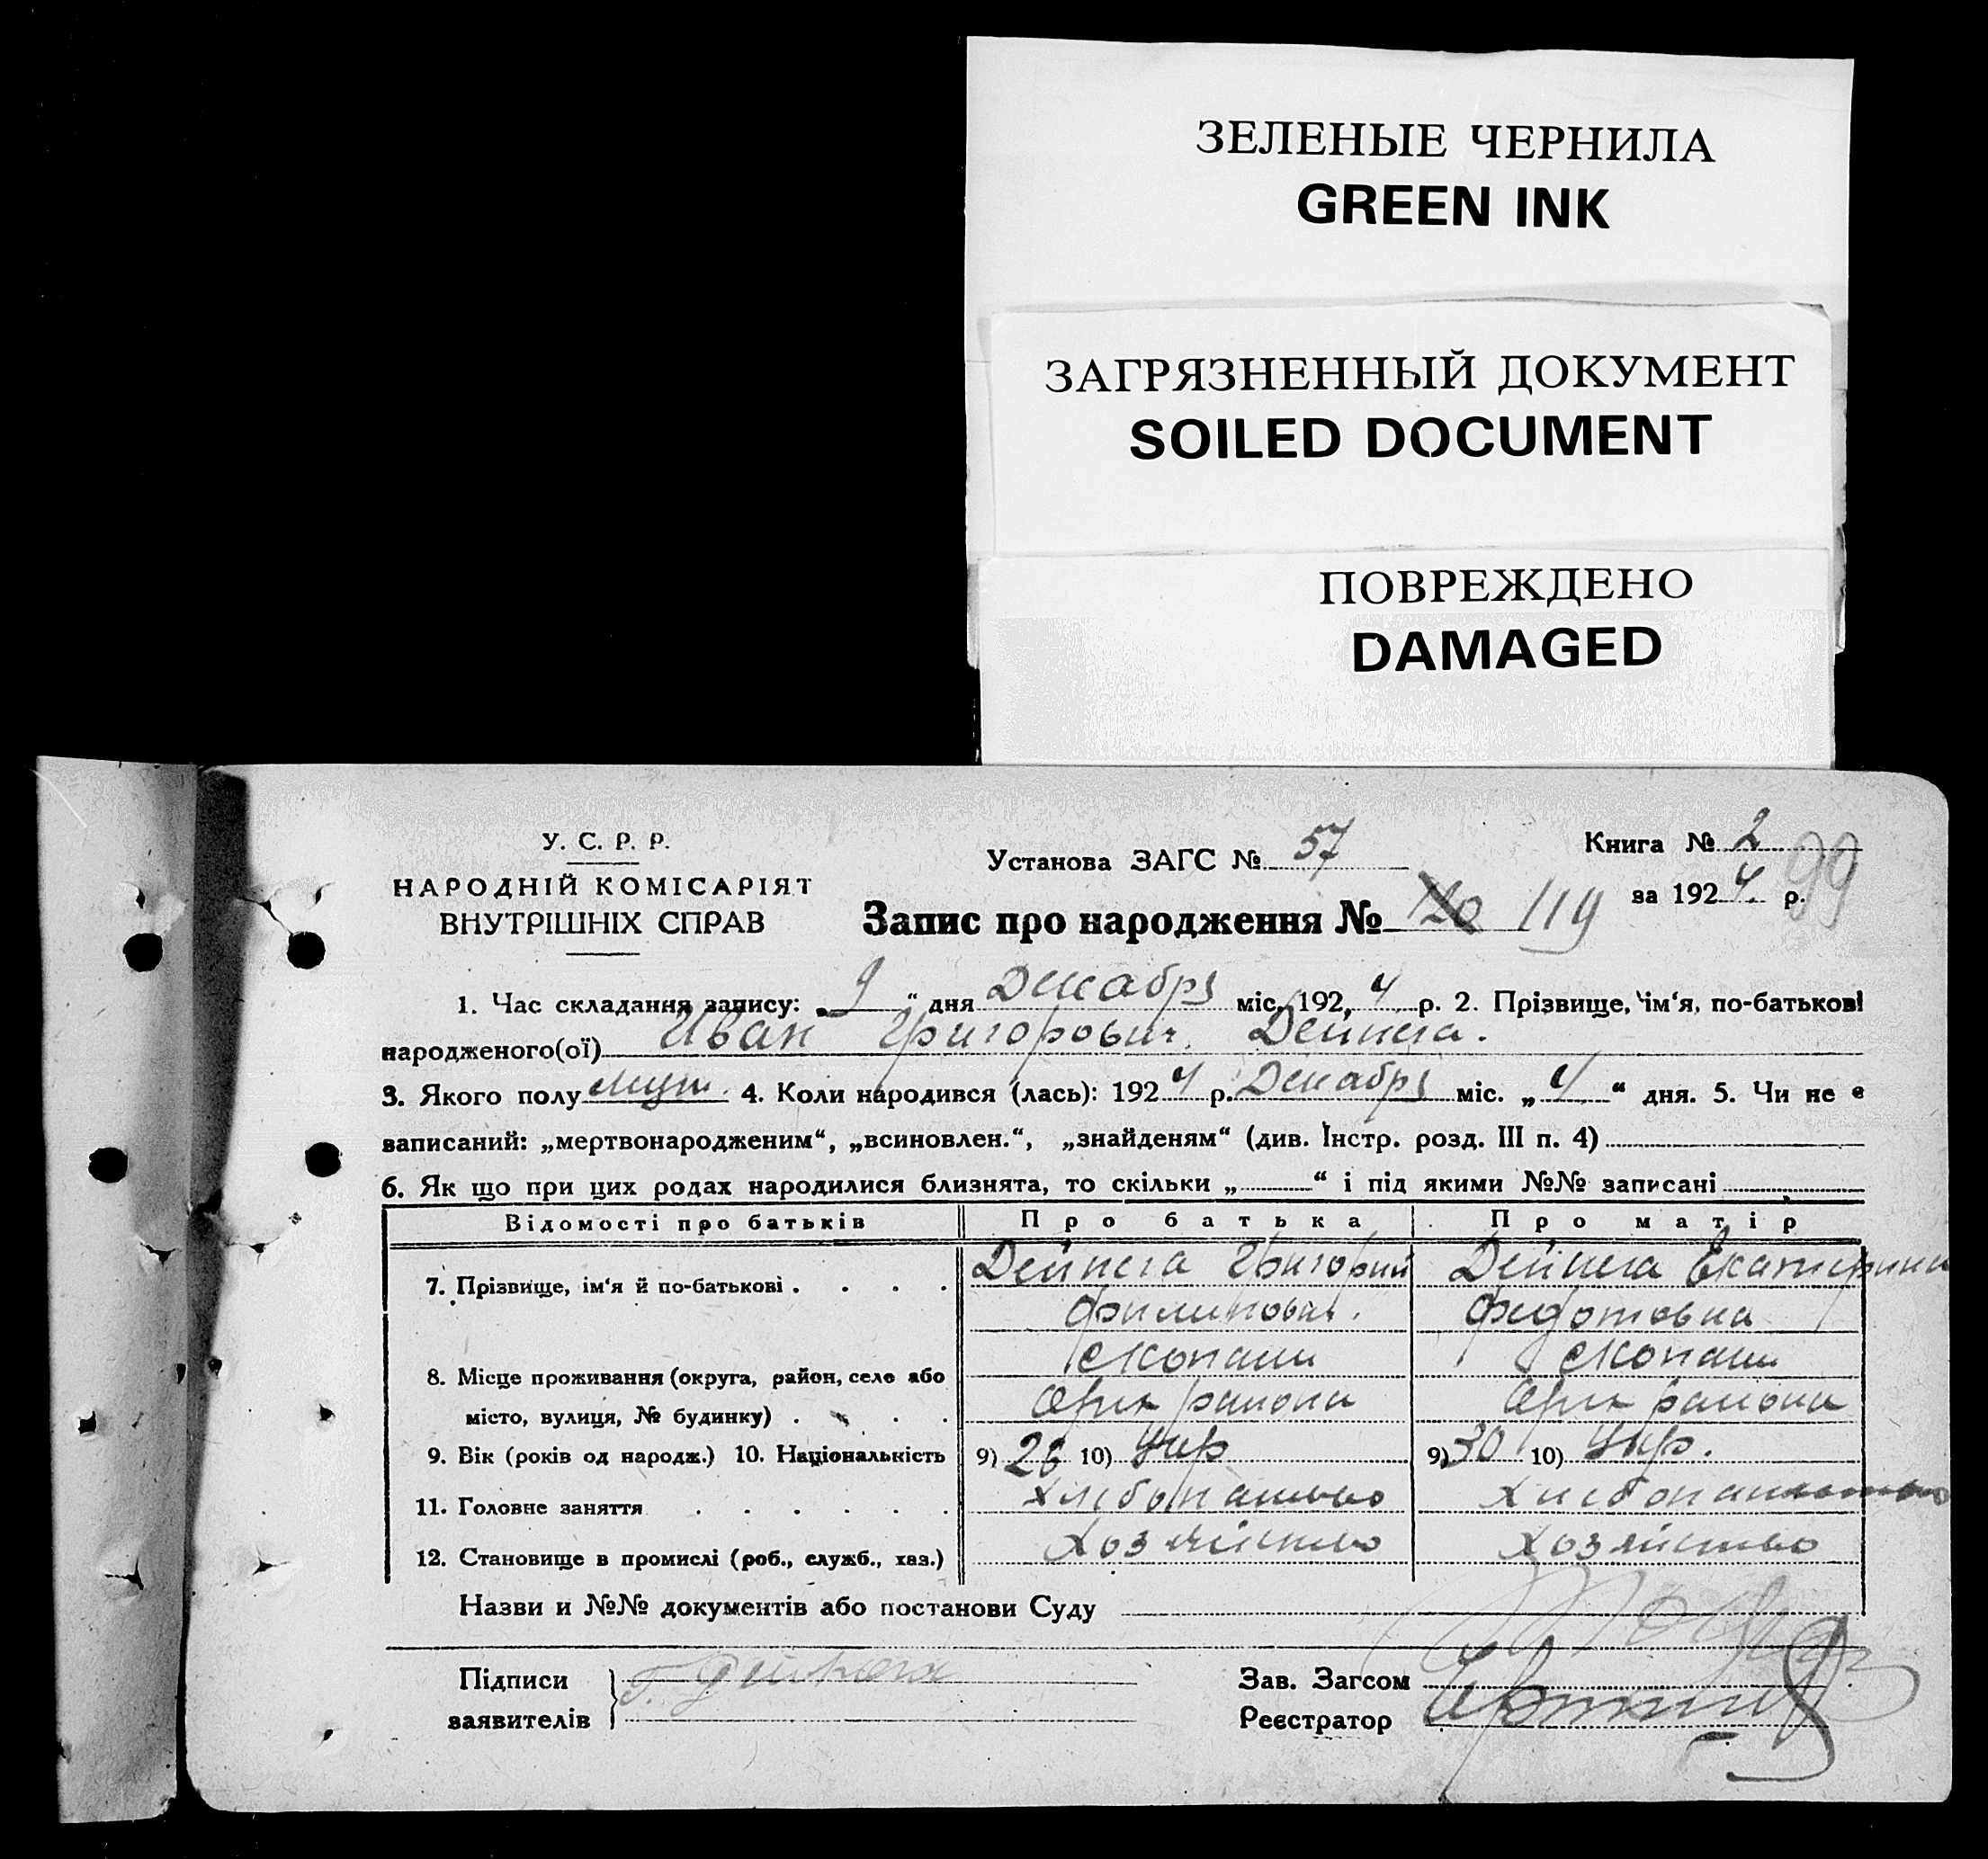 ЗЕЛЕНЫЕ ЧЕРНИЛА
GREEN INK
ЗАГРЯЗНЕННЫЙ ДОКУМЕНТ
SOILED DOCUMENT
ПОВРЕЖДЕНО
DAMAGED
У. С. Р. Р.
НАРОДНІЙ КОМІСАРІЯТ
ВНУТРІШНІХ СПРАВ
Установа ЗАГС № 57
Книга № 2
за 1924 р. 99
Запис про народження № 120 119
1. Час складання запису: „ 9 “ дня Декабря міс. 1924 р. 2. Прізвище, ім‘я, по-батькові
народженого(ої) Иван Григорович Дейнега.
3. Якого полу муж. 4. Коли народився (лась): 1924 р. Декабря міс. „ 4 “ дня. 5. Чи не є
записаний: „мертвонародженим“, „всиновлен.“, „знайденям“ (див. Інстр. розд. III п. 4)
6. Як що при цих родах народилися близнята, то скільки „ “ і під якими №№ записані
Відомості про батьків Про батька Про матір
7. Прізвище, ім‘я й по-батькові . . . . Дейнега Григорий Дейнега Екатерина
Филипович. Федотовна
Скопани Скопани
8. Місце проживання (округа, район, село або
місто, вулиця, № будинку) . . . . района района
9. Вік (років од народж.) 10. Національність 9) 26 10) Укр 9) 30 10) Укр.
11. Головне заняття . . . . . . Хлебопашество Хлебопашество
12. Становище в промислі (роб., служб., хаз.) Хозяйство Хозяйство
Назви и №№ документів або постанови Суду
Підписи
заявителів
Г. Дейнега
Зав. Загсом
Реєстратор